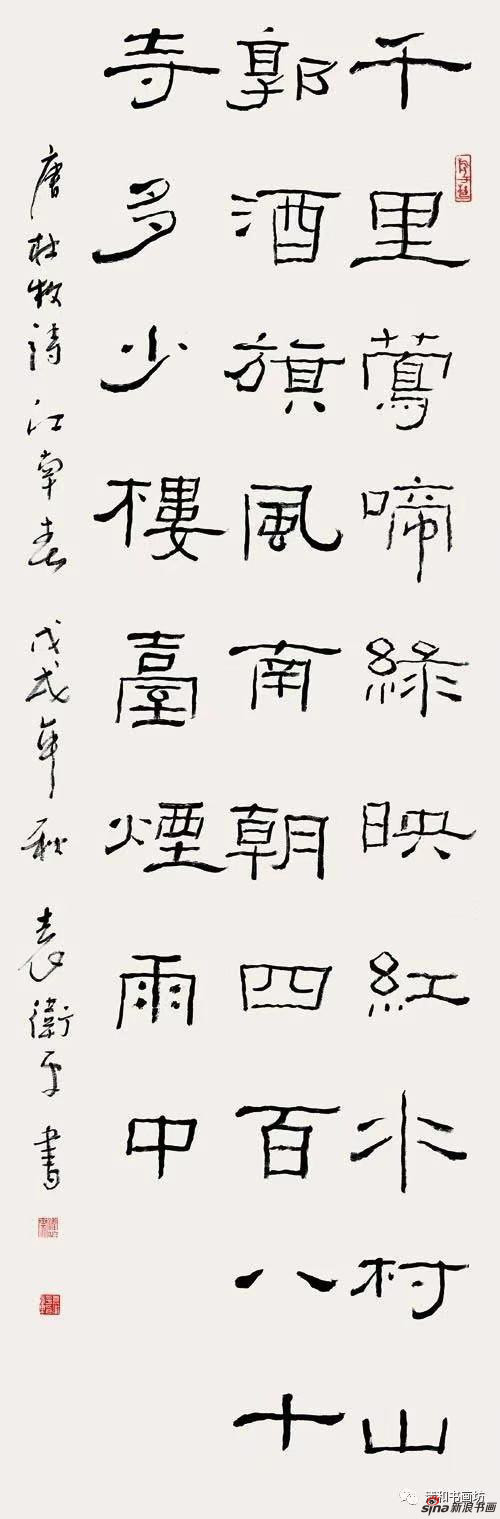 千里鶯啼綠映紅水村山
郭酒旗風南朝四百八十
寺多少樓臺煙雨中
唐杜牧詩江南春 戊戌年秋 袁衛平書
清和书画坊
sina新浪书画